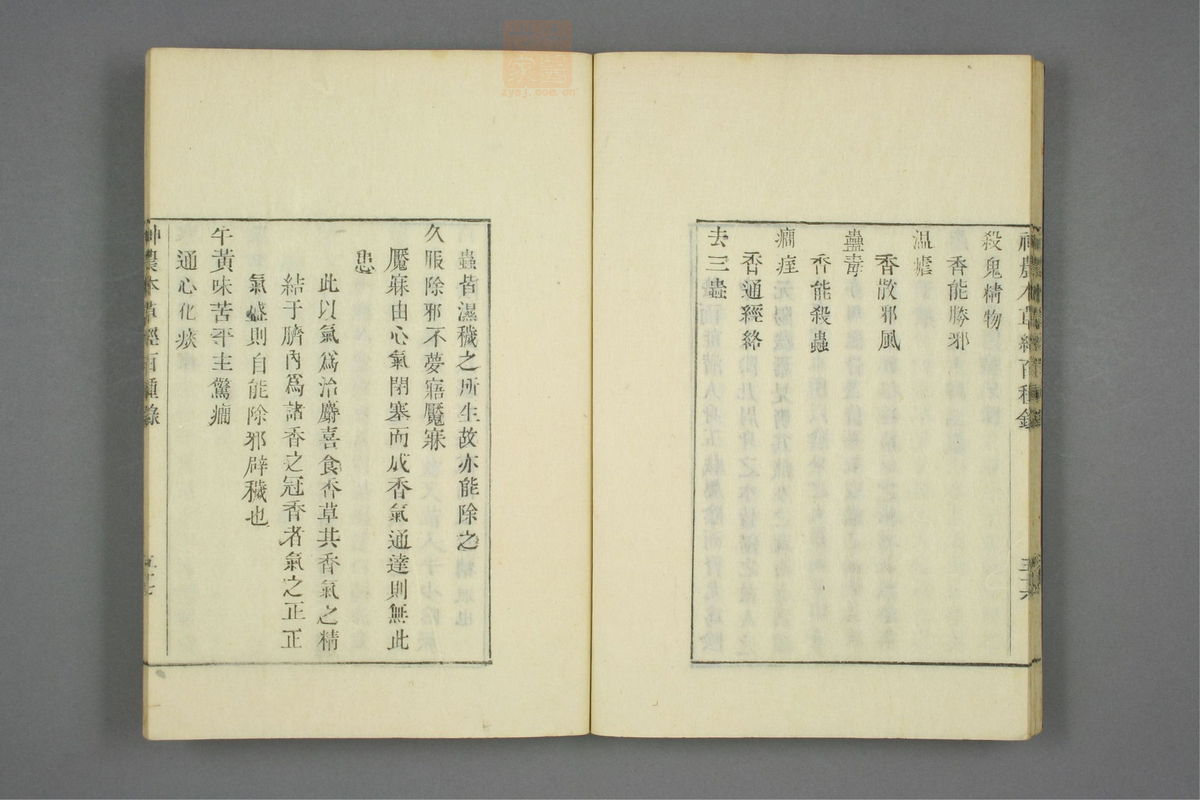 神農本草經百種錄
殺鬼精物
香能勝邪
温瘧
香散邪風
蠱毒
香能殺蟲
癇痓
香通經絡
去三蟲
五十六
蟲皆濕穢之所生故亦能除之
久服除邪不夢寤魘寐
魘寐由心氣閉塞而成香氣通達則無此
患
此以氣爲治麝喜食香草其香氣之精
結于臍內爲諸香之冠香者氣之正正
氣盛則自能除邪辟穢也
牛黃味苦平主驚癇
通心化痰
神農本草經百種錄
zyoj.com.cn